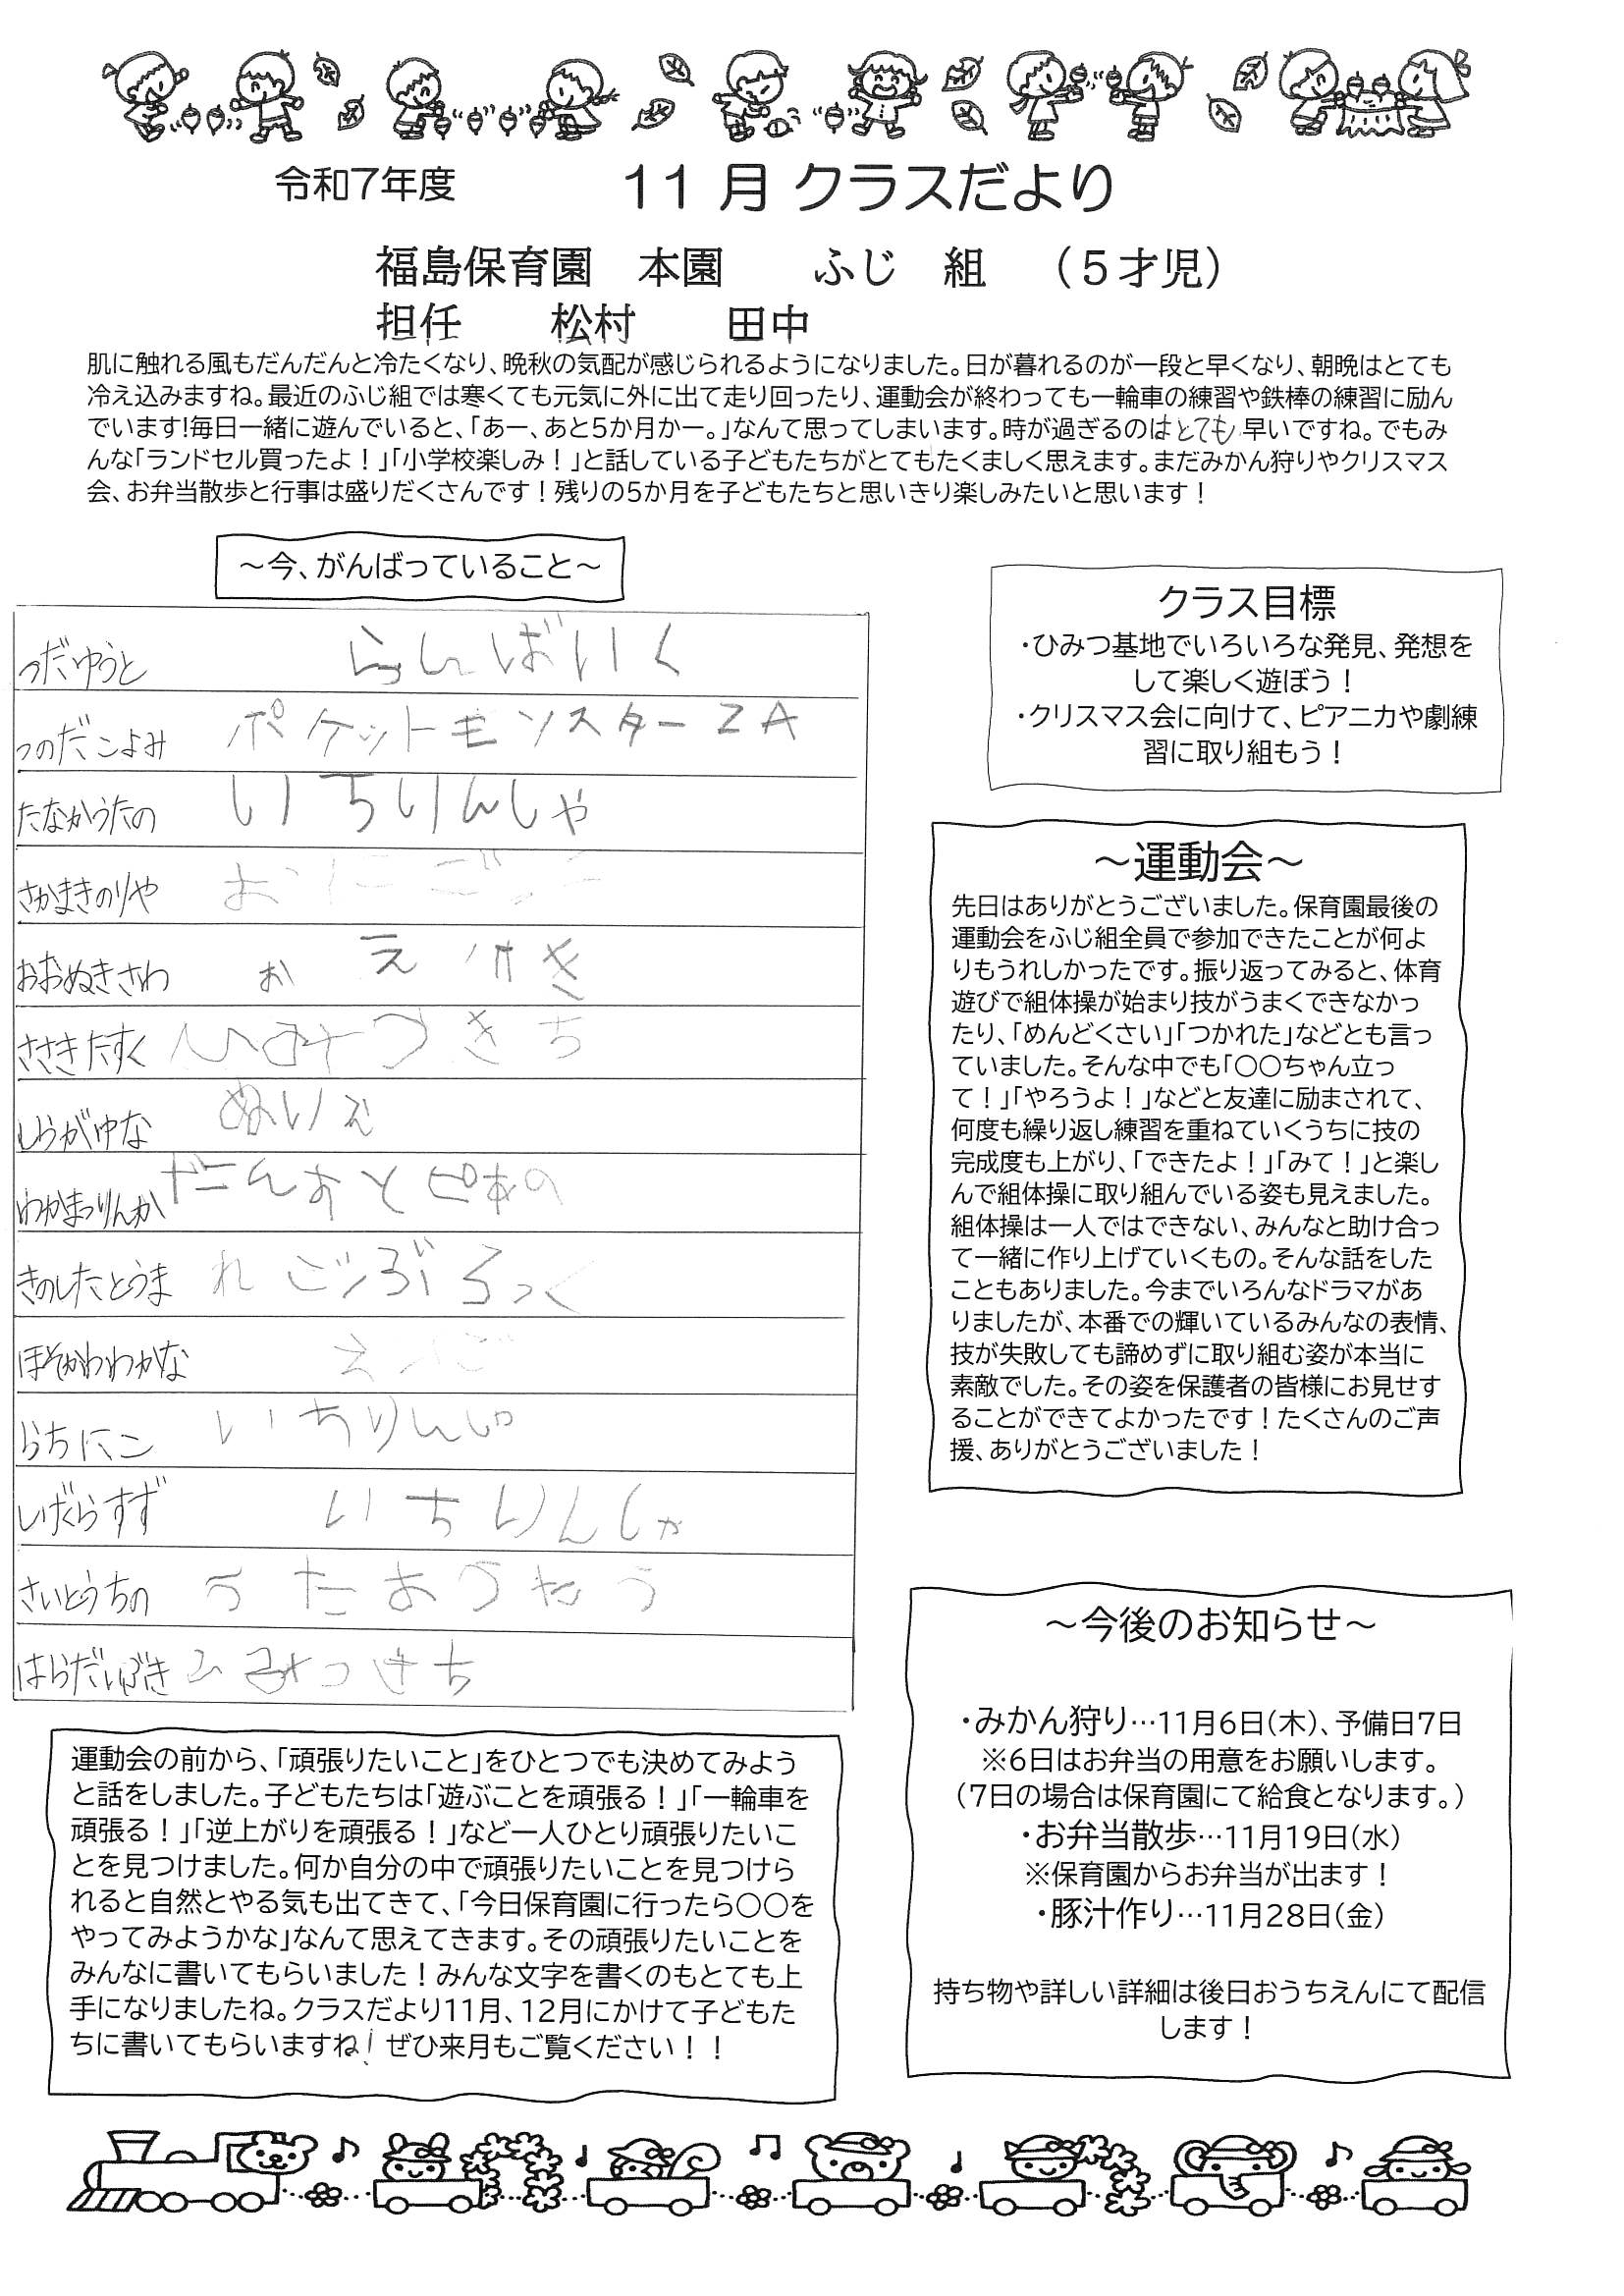 令和7年度 11 月 クラスだより
福島保育園 本園 ふじ 組 （5才児）
担任 松村 田中
肌に触れる風もだんだんと冷たくなり、晩秋の気配が感じられるようになりました。日が暮れるのが一段と早くなり、朝晩はとても
冷え込みますね。最近のふじ組では寒くても元気に外に出て走り回ったり、運動会が終わっても一輪車の練習や鉄棒の練習に励ん
でいます!毎日一緒に遊んでいると、「あー、あと5か月かー。」なんて思ってしまいます。時が過ぎるのはとても早いですね。でもみ
んな「ランドセル買ったよ！」「小学校楽しみ！」と話している子どもたちがとてもたくましく思えます。まだみかん狩りやクリスマス
会、お弁当散歩と行事は盛りだくさんです！残りの5か月を子どもたちと思いきり楽しみたいと思います！
～今、がんばっていること～
つだゆうと らんばいく
つのだこよみ ポケットモンスターZA
たなかうたの いちりんしゃ
さかまきのりや おにごっこ
おおぬきさわ おえかき
ささきたすく ひみつきち
しらがゆな ぬりえ
わかまつりんか だんすとピあの
きのしたとうま れごぶろっく
ほそかわわかな
らちにこ いちりんしゃ
しげくらすず いちりんしゃ
さいとうちの うたおうたう
はらだいぶき ひみつきち
運動会の前から、「頑張りたいこと」をひとつでも決めてみよう
と話をしました。子どもたちは「遊ぶことを頑張る！」「一輪車を
頑張る！」「逆上がりを頑張る！」など一人ひとり頑張りたいこ
とを見つけました。何か自分の中で頑張りたいことを見つけら
れると自然とやる気も出てきて、「今日保育園に行ったら○○を
やってみようかな」なんて思えてきます。その頑張りたいことを
みんなに書いてもらいました！みんな文字を書くのもとても上
手になりましたね。クラスだより11月、12月にかけて子どもた
ちに書いてもらいますね！ぜひ来月もご覧ください！！
クラス目標
・ひみつ基地でいろいろな発見、発想を
して楽しく遊ぼう！
・クリスマス会に向けて、ピアニカや劇練
習に取り組もう！
～運動会～
先日はありがとうございました。保育園最後の
運動会をふじ組全員で参加できたことが何よ
りもうれしかったです。振り返ってみると、体育
遊びで組体操が始まり技がうまくできなかっ
たり、「めんどくさい」「つかれた」などとも言っ
ていました。そんな中でも「○○ちゃん立っ
て！」「やろうよ！」などと友達に励まされて、
何度も繰り返し練習を重ねていくうちに技の
完成度も上がり、「できたよ！」「みて！」と楽し
んで組体操に取り組んでいる姿も見えました。
組体操は一人ではできない、みんなと助け合っ
て一緒に作り上げていくもの。そんな話をした
こともありました。今までいろんなドラマがあ
りましたが、本番での輝いているみんなの表情、
技が失敗しても諦めずに取り組む姿が本当に
素敵でした。その姿を保護者の皆様にお見せす
ることができてよかったです！たくさんのご声
援、ありがとうございました！
～今後のお知らせ～
・みかん狩り…11月6日(木)、予備日7日
※6日はお弁当の用意をお願いします。
(7日の場合は保育園にて給食となります。)
・お弁当散歩…11月19日(水)
※保育園からお弁当が出ます！
・豚汁作り…11月28日(金)
持ち物や詳しい詳細は後日おうちえんにて配信
します！